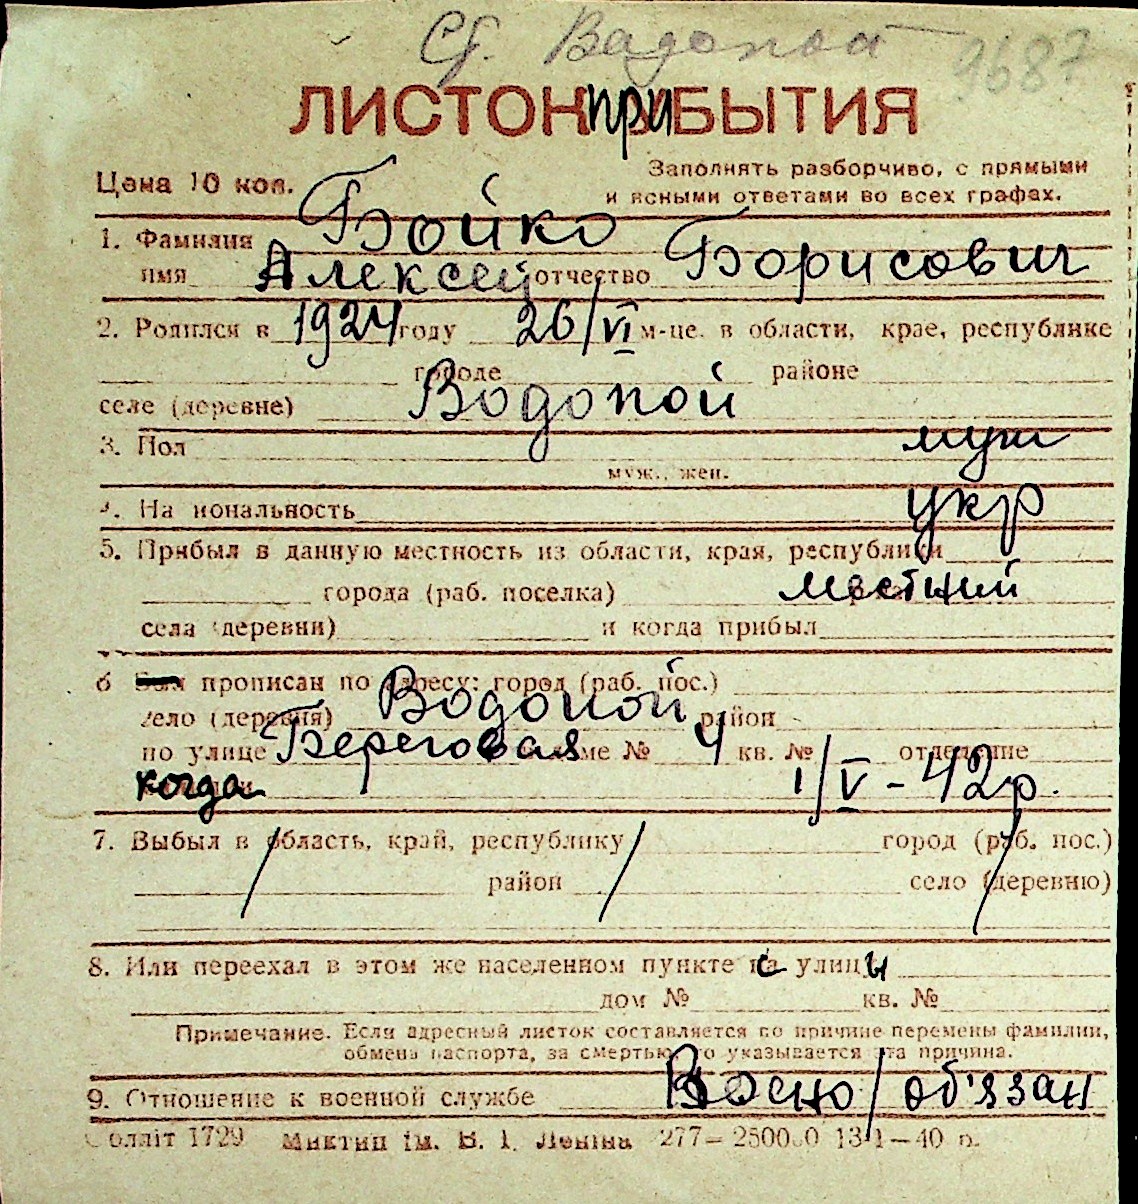 Сд. Вадопой 9687
ЛИСТОК приБЫТИЯ
Цена 10 коп. Заполнять разборчиво, с прямыми
и ясными ответами во всех графах.
1. Фамилия Бойко
имя Алексей отчество Борисович
2. Родился в 1924 году 26/VI м-це. в области, крае, республике
городе районе
селе (деревне) Водопой
3. Пол муж
муж., жен.
4. На иональность укр
5. Прибыл в данную местность из области, края, республики
города (раб. поселка) местний
села (деревни) и когда прибыл
6 Был прописан по адресу: город (раб. пос.)
село (деревня) Водопой район
по улице Береговая доме № 4 кв. № отделение
когда 1/V - 42р.
7. Выбыл в область, край, республику город (раб. пос.)
район село (деревню)
8. Или переехал в этом же населенном пункте с улицы
дом № кв. №
Примечание. Если адресный листок составляется по причине перемены фамилии,
обмена паспорта, за смертью, то указывается эта причина.
9. Отношение к военной службе Воєно/об'язан
облліт 1729 Миктип ім. В. І. Леніна 277— 13/1—40 р.